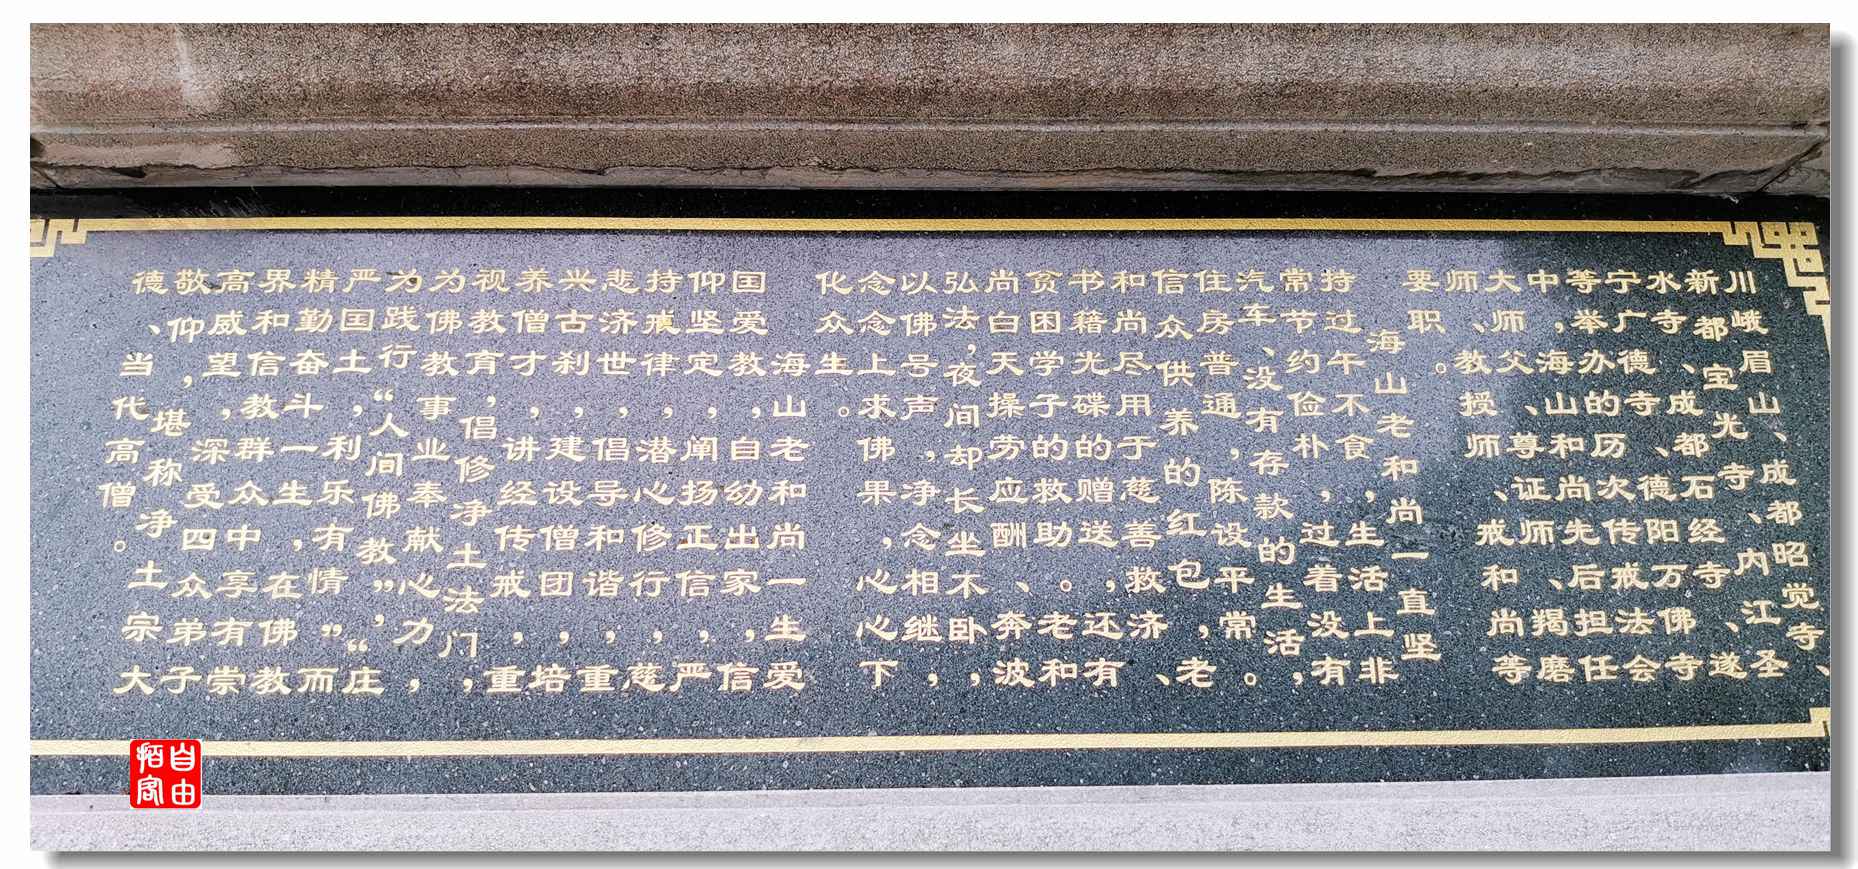 川峨眉山、成都昭觉寺、
新都宝光寺、内江圣
水寺、成都石经寺、遂
宁广德寺、德阳万佛寺
等举办的历次传戒法会
中，海山和尚先后担任
大师父、尊证师、羯磨
师、教授师、戒和尚等
要职。
海山老和尚一直坚
持过午不食，生活上非
常节约俭朴，过着没有
汽车、没有存款的生活，
住房普通，陈设平常。
信众供养的红包，老
和尚尽用于慈善救济、
书籍光碟的赠送，还有
贫困学子的救助。老和
尚白天操劳应酬、奔波
弘法，夜间却长坐不卧，
以佛号声，净念相继，
念念上求佛果，心心下
化众生。
海山老和尚一生爱
国爱教，自幼出家，信
仰坚定，阐扬正信，严
持戒律，潜心修行，慈
悲济世，倡导和谐，重
兴古刹，建设僧团，培
养僧才，讲经传戒，重
视教育，倡修净土法门，
为佛教事业奉献心力，
为践行“人间佛教”，“庄
严国土，利乐有情”而
精勤奋斗一生，在佛教
界和信教群众中享有崇
高威望，深受四众弟子
敬仰，堪称净土宗大
德、当代高僧。
自由
陌客